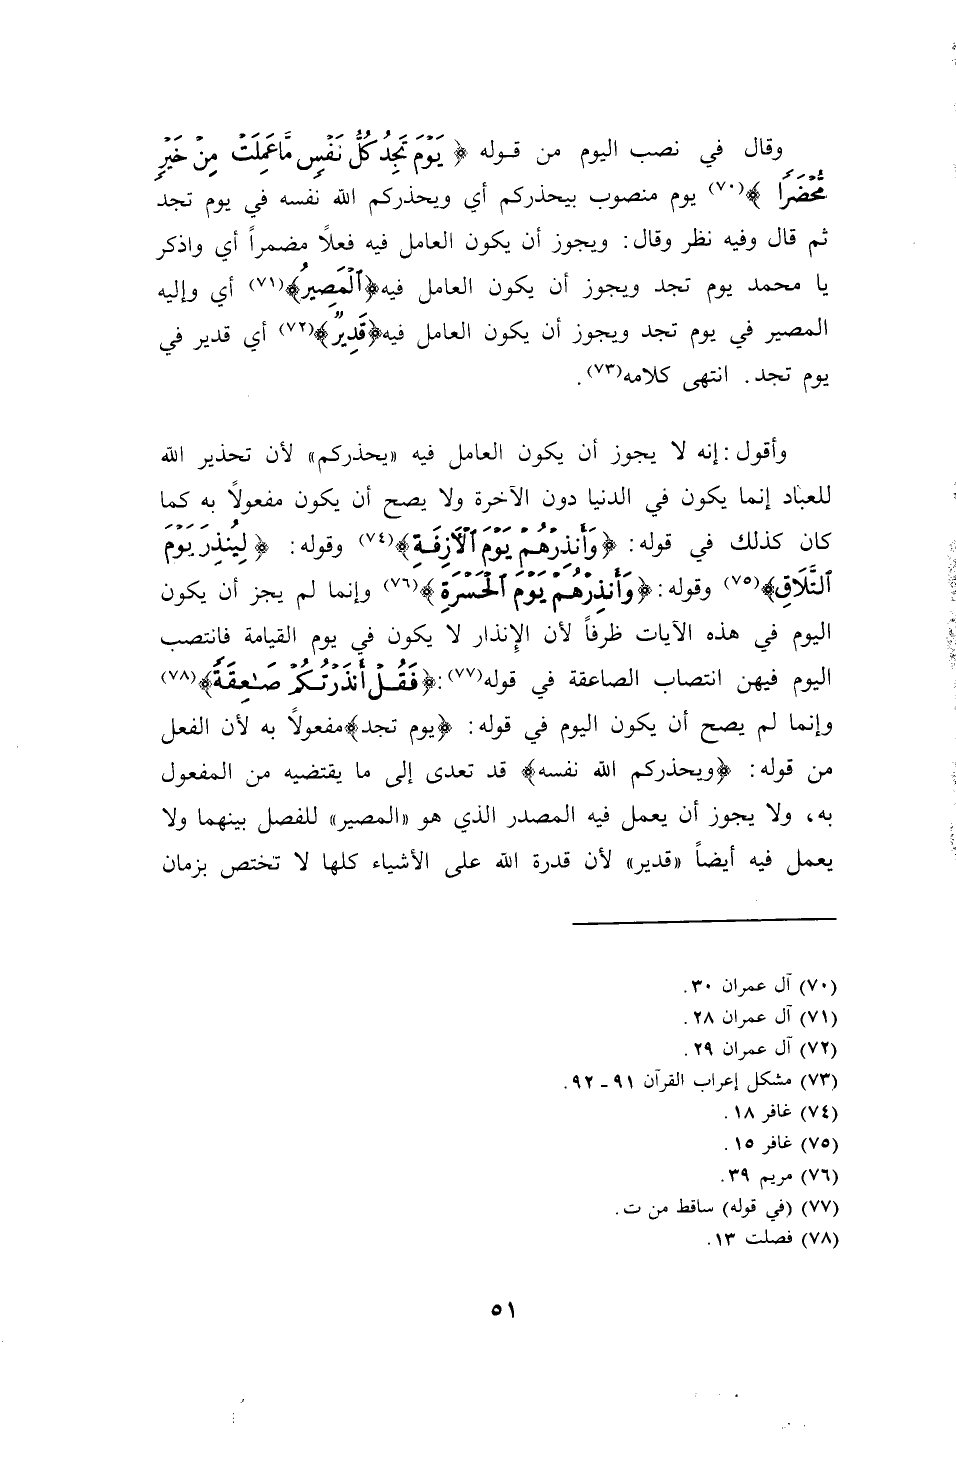 وقال في نصب اليوم من قوله ﴿ يَوْمَ تَجِدُ كُلُّ نَفْسٍ مَّا عَمِلَتْ مِنْ خَيْرٍ
مُّحْضَرًا ﴾(٧٠) يوم منصوب بيحذركم أي ويحذركم الله نفسه في يوم تجد
ثم قال وفيه نظر وقال: ويجوز أن يكون العامل فيه فعلاً مضمراً أي واذكر
يا محمد يوم تجد ويجوز أن يكون العامل فيه﴿ٱلْمَصِيرُ﴾(٧١) أي وإليه
المصير في يوم تجد ويجوز أن يكون العامل فيه﴿قَدِيرٌ﴾(٧٢) أي قدير في
يوم تجد. انتهى كلامه(٧٣).
وأقول: إنه لا يجوز أن يكون العامل فيه «يحذركم» لأن تحذير الله
للعباد إنما يكون في الدنيا دون الآخرة ولا يصح أن يكون مفعولاً به كما
كان كذلك في قوله: ﴿وَأَنذِرْهُمْ يَوْمَ ٱلْآزِفَةِ﴾(٧٤) وقوله: ﴿ لِيُنذِرَ يَوْمَ
ٱلتَّلَاقِ﴾(٧٥) وقوله: ﴿وَأَنذِرْهُمْ يَوْمَ ٱلْحَسْرَةِ ﴾(٧٦) وإنما لم يجز أن يكون
اليوم في هذه الآيات ظرفاً لأن الإنذار لا يكون في يوم القيامة فانتصب
اليوم فيهن انتصاب الصاعقة في قوله(٧٧):﴿فَقُلْ أَنذَرْتُكُمْ صَٰعِقَةً﴾(٧٨)
وإنما لم يصح أن يكون اليوم في قوله: ﴿يوم تجد﴾مفعولاً به لأن الفعل
من قوله: ﴿ويحذركم الله نفسه﴾ قد تعدى إلى ما يقتضيه من المفعول
به، ولا يجوز أن يعمل فيه المصدر الذي هو «المصير» للفصل بينهما ولا
يعمل فيه أيضاً «قدير» لأن قدرة الله على الأشياء كلها لا تختص بزمان
(٧٠) آل عمران ٣٠.
(٧١) آل عمران ٢٨.
(٧٢) آل عمران ٢٩.
(٧٣) مشكل إعراب القرآن ٩١ - ٩٢.
(٧٤) غافر ١٨.
(٧٥) غافر ١٥.
(٧٦) مريم ٣٩.
(٧٧) (في قوله) ساقط من ت.
(٧٨) فصلت ١٣.
٥١